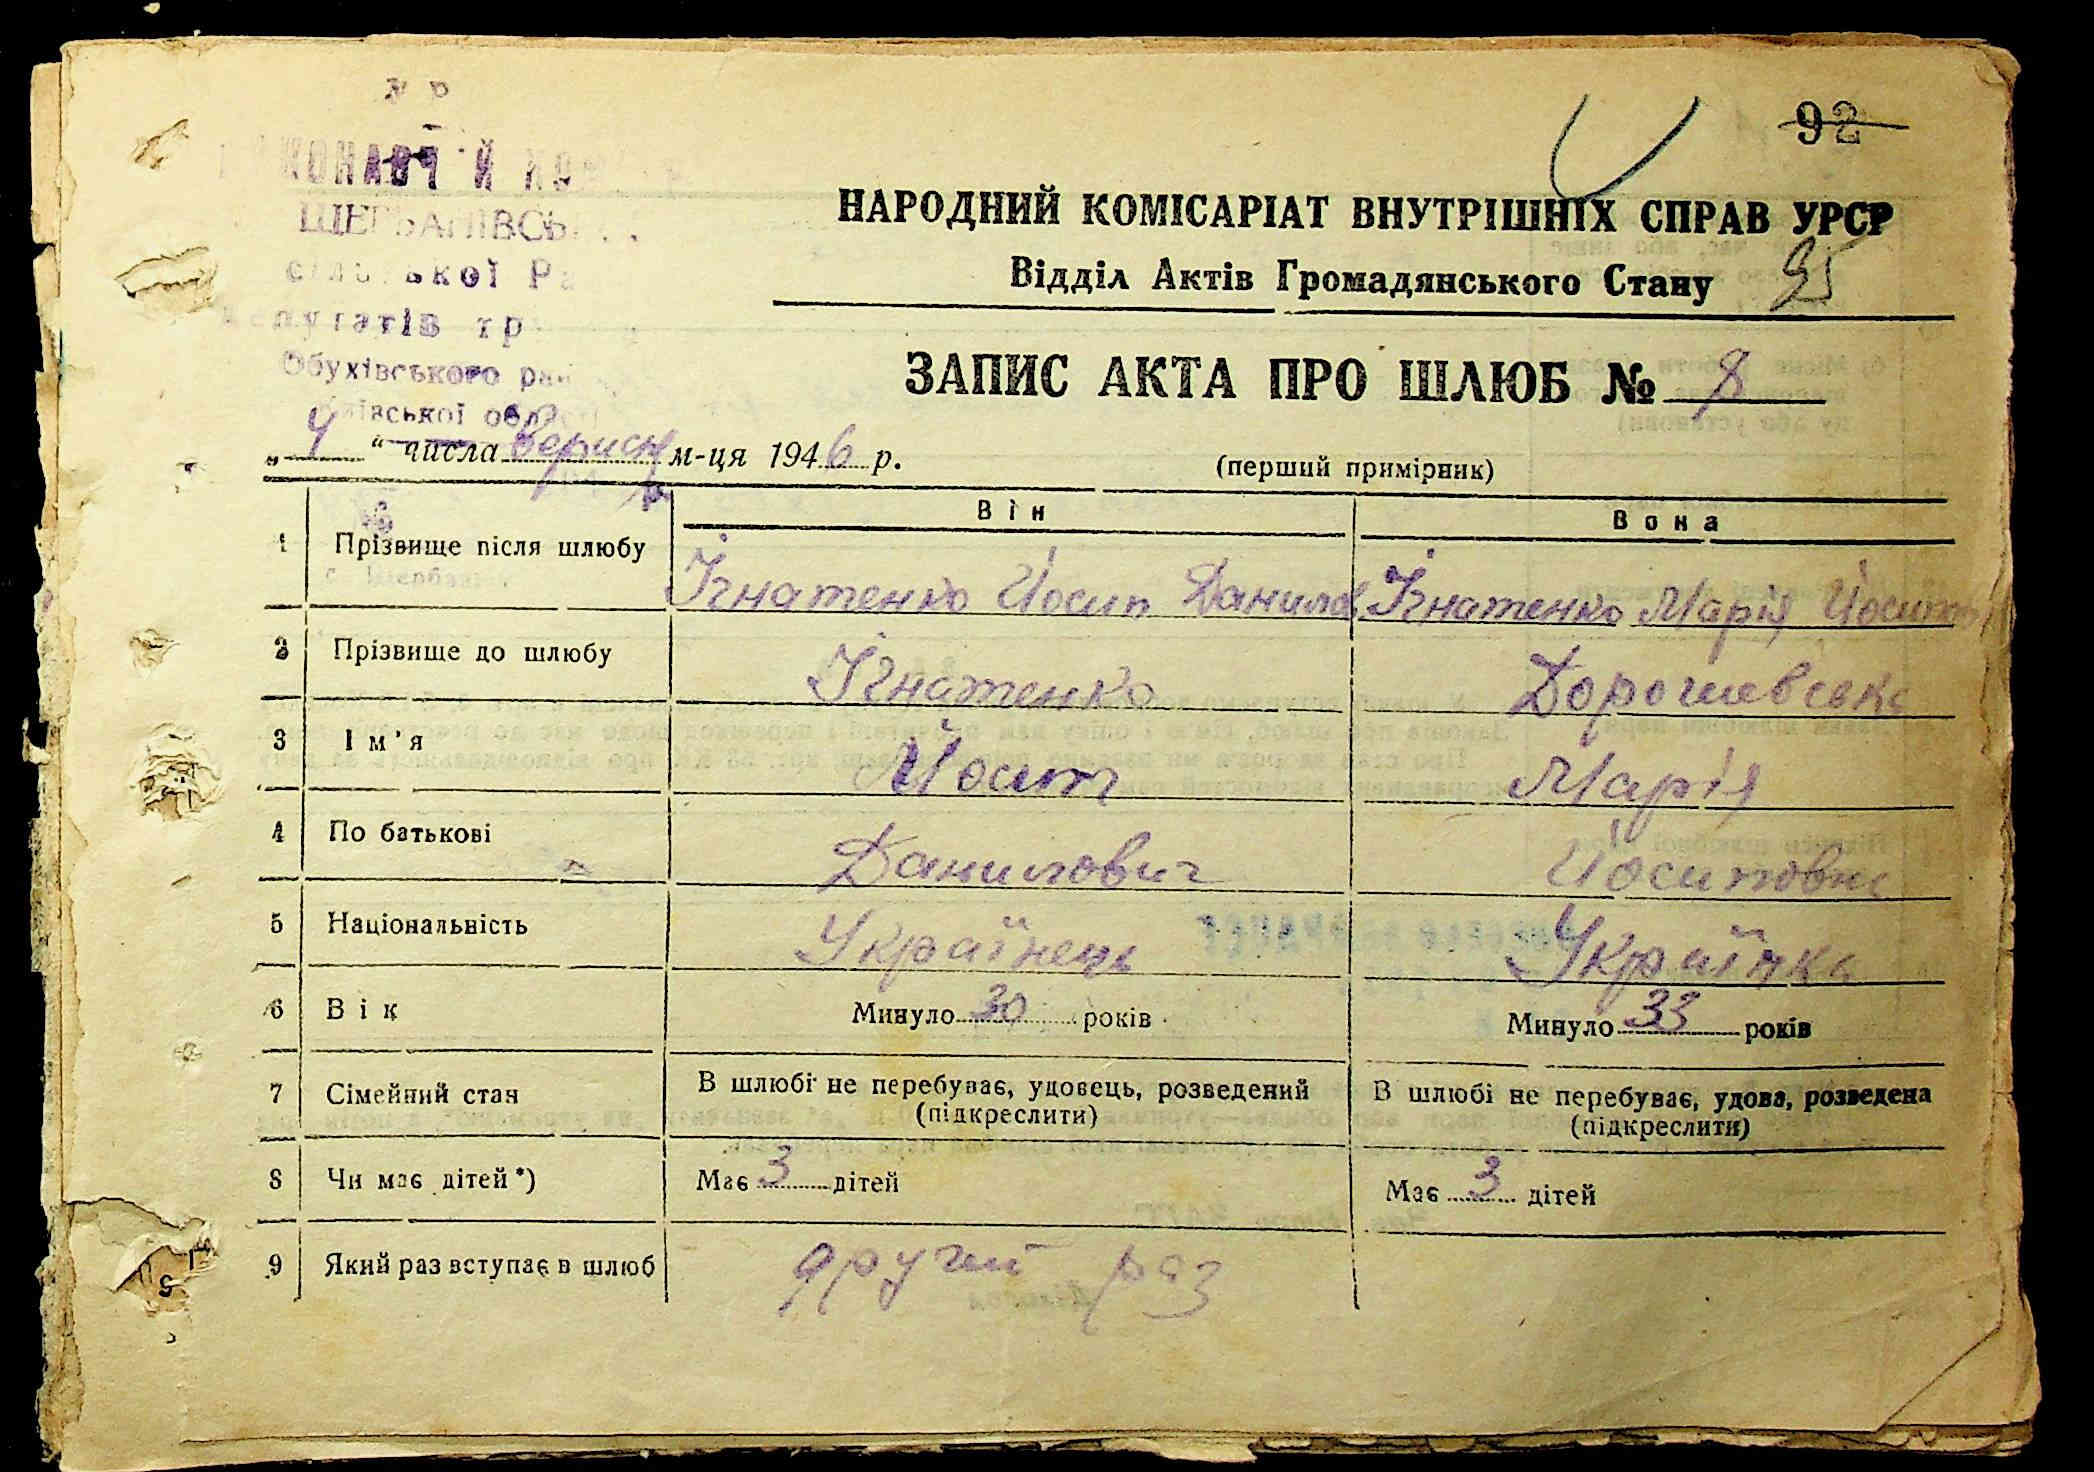 92
НАРОДНИЙ КОМІСАРІАТ ВНУТРІШНІХ СПРАВ УРСР
Відділ Актів Громадянського Стану 95
ЩЕРБАНІВСЬ
сільської Ра
депутатів тр
Обухівського рай
Київської обл
ЗАПИС АКТА ПРО ШЛЮБ № 8
„4" числа вересн м-ця 1946 р.
(перший примірник)
Він Вона
1 Прізвище після шлюбу Ігнатенко Йосип Данилов Ігнатенко Марія Йосипов
2 Прізвище до шлюбу Ігнатенко Дорошевська
3 Ім'я Йосип Марія
4 По батькові Данилович Йосиповна
5 Національність Українець Українка
6 Вік Минуло 30 років Минуло 33 років
7 Сімейний стан В шлюбі не перебуває, удовець, розведений В шлюбі не перебуває, удова, розведена
(підкреслити) (підкреслити)
8 Чи має дітей*) Має 3 дітей Має 3 дітей
9 Який раз вступає в шлюб другий раз